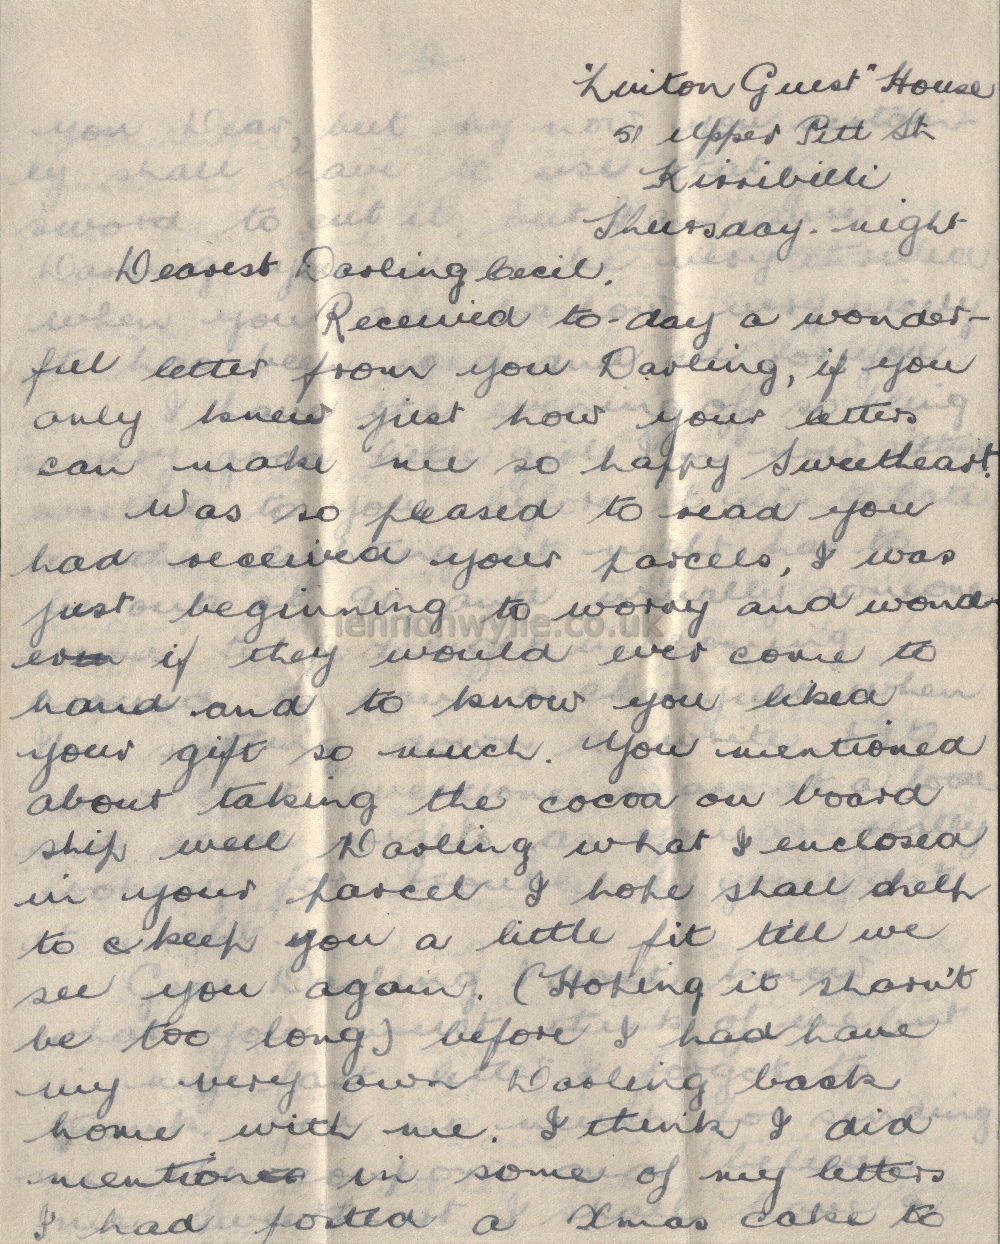 "Luiton Guest" House
51 Upper Pitt St
Kirribilli
Thursday. night
Dearest Darling Cecil,
Received to-day a wonder-
ful letter from you Darling, if you
only knew just how your letters
can make me so happy Sweetheart.
Was so pleased to read you
had received your parcels, I was
just beginning to worry and wond-
er if they would ever come to
hand and to know you liked
your gift so much. You mentioned
about taking the cocoa on board
ship well Darling what I enclosed
in your parcel I hope shall help
to keep you a little fit till we
see you again. (Hoping it sharn't
be too long) before I had have
my very own Darling back
home with me. I think I did
mention in some of my letters
I had posted a Xmas cake to
lennonwylie.co.uk